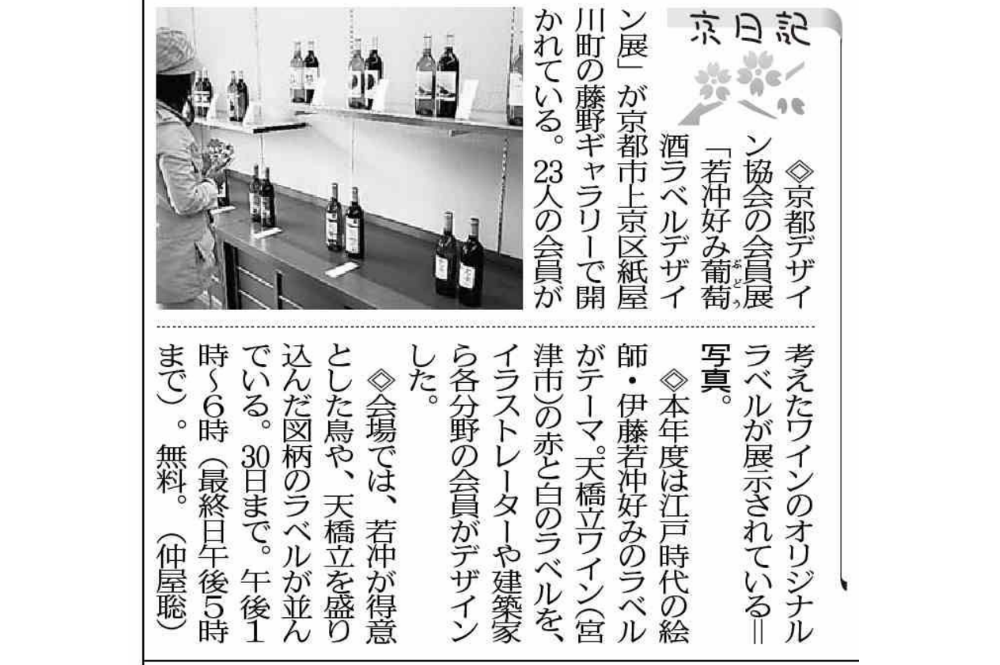 京日記
◇京都デザイ
ン協会の会員展
「若冲好み葡萄
ぶどう
酒ラベルデザイ
ン展」が京都市上京区紙屋
川町の藤野ギャラリーで開
かれている。23人の会員が
考えたワインのオリジナル
ラベルが展示されている＝
写真。
◇本年度は江戸時代の絵
師・伊藤若冲好みのラベル
がテーマ。天橋立ワイン（宮
津市）の赤と白のラベルを、
イラストレーターや建築家
ら各分野の会員がデザイン
した。
◇会場では、若冲が得意
とした鳥や、天橋立を盛り
込んだ図柄のラベルが並ん
でいる。30日まで。午後1
時～6時（最終日午後5時
まで）。無料。（仲屋聡）